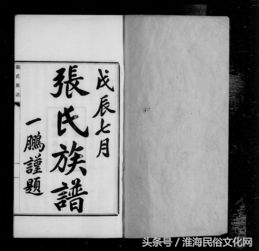 戊辰七月
張氏族譜
一鵬謹題
头条号／淮海民俗文化网